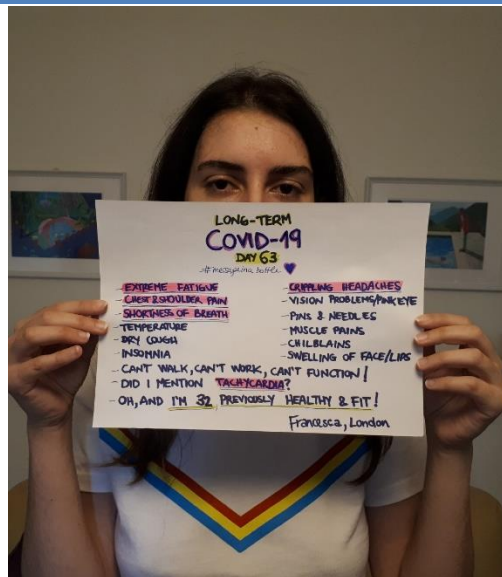 LONG-TERM
COVID-19
DAY 63
#messyinabottle
- EXTREME FATIGUE
- CHEST & SHOULDER PAIN
- SHORTNESS OF BREATH
- TEMPERATURE
- DRY COUGH
- INSOMNIA
- CRIPPLING HEADACHES
- VISION PROBLEMS/PINK EYE
- PINS & NEEDLES
- MUSCLE PAINS
- CHILBLAINS
- SWELLING OF FACE/LIPS
- CAN'T WALK, CAN'T WORK, CAN'T FUNCTION!
- DID I MENTION TACHYCARDIA?
- OH, AND I'M 32 PREVIOUSLY HEALTHY & FIT!
Francesca, London